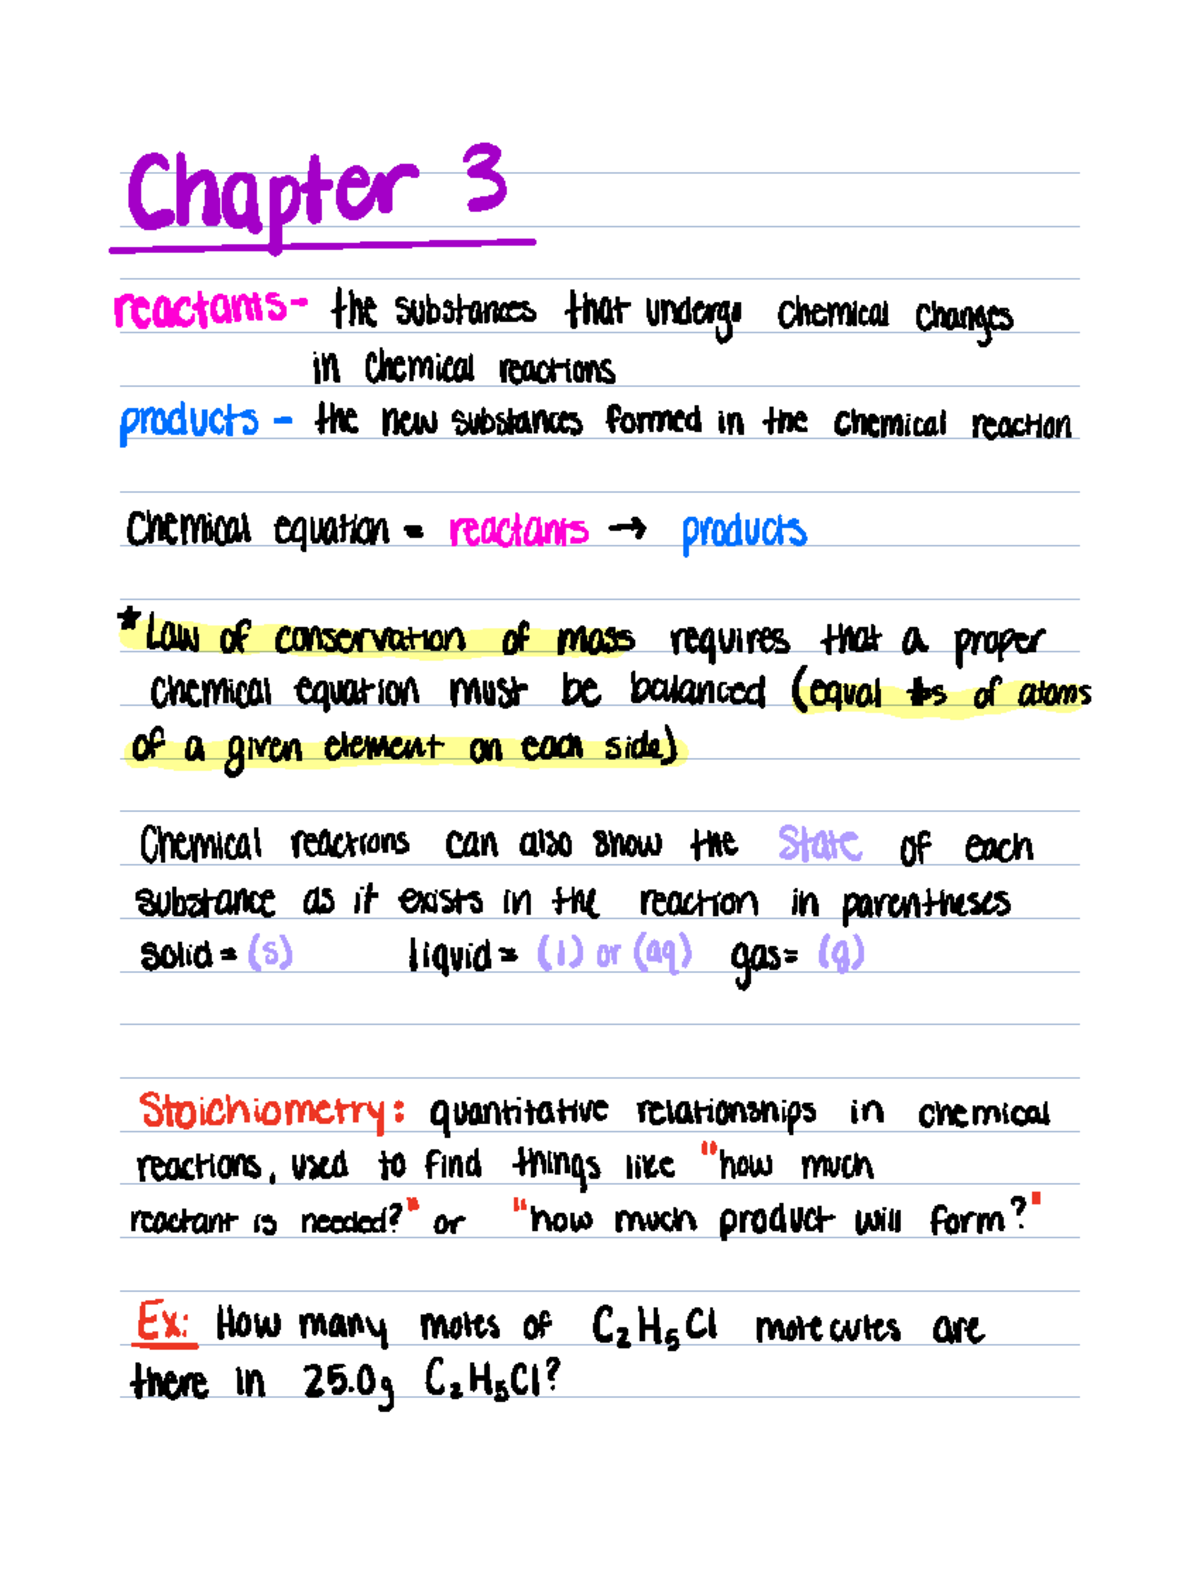 Chapter 3
reactants- the substances that undergo chemical changes
in chemical reactions
products - the new substances formed in the chemical reaction
Chemical equation = reactants → products
*Law of conservation of mass requires that a proper
chemical equation must be balanced (equal #s of atoms
of a given element on each side)
Chemical reactions can also show the state of each
substance as it exists in the reaction in parentheses
solid = (s) liquid = (l) or (aq) gas= (g)
Stoichiometry: quantitative relationships in chemical
reactions, used to find things like "how much
reactant is needed?" or "how much product will form?"
Ex: How many moles of C₂H₅Cl molecules are
there in 25.0g C₂H₅Cl?